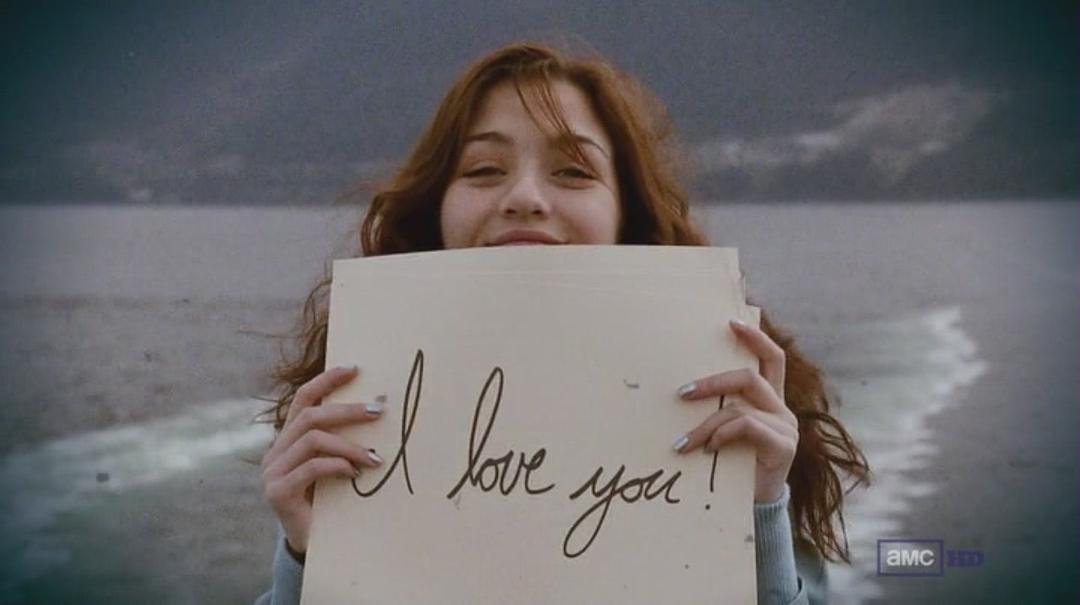 I love you!
amc HD